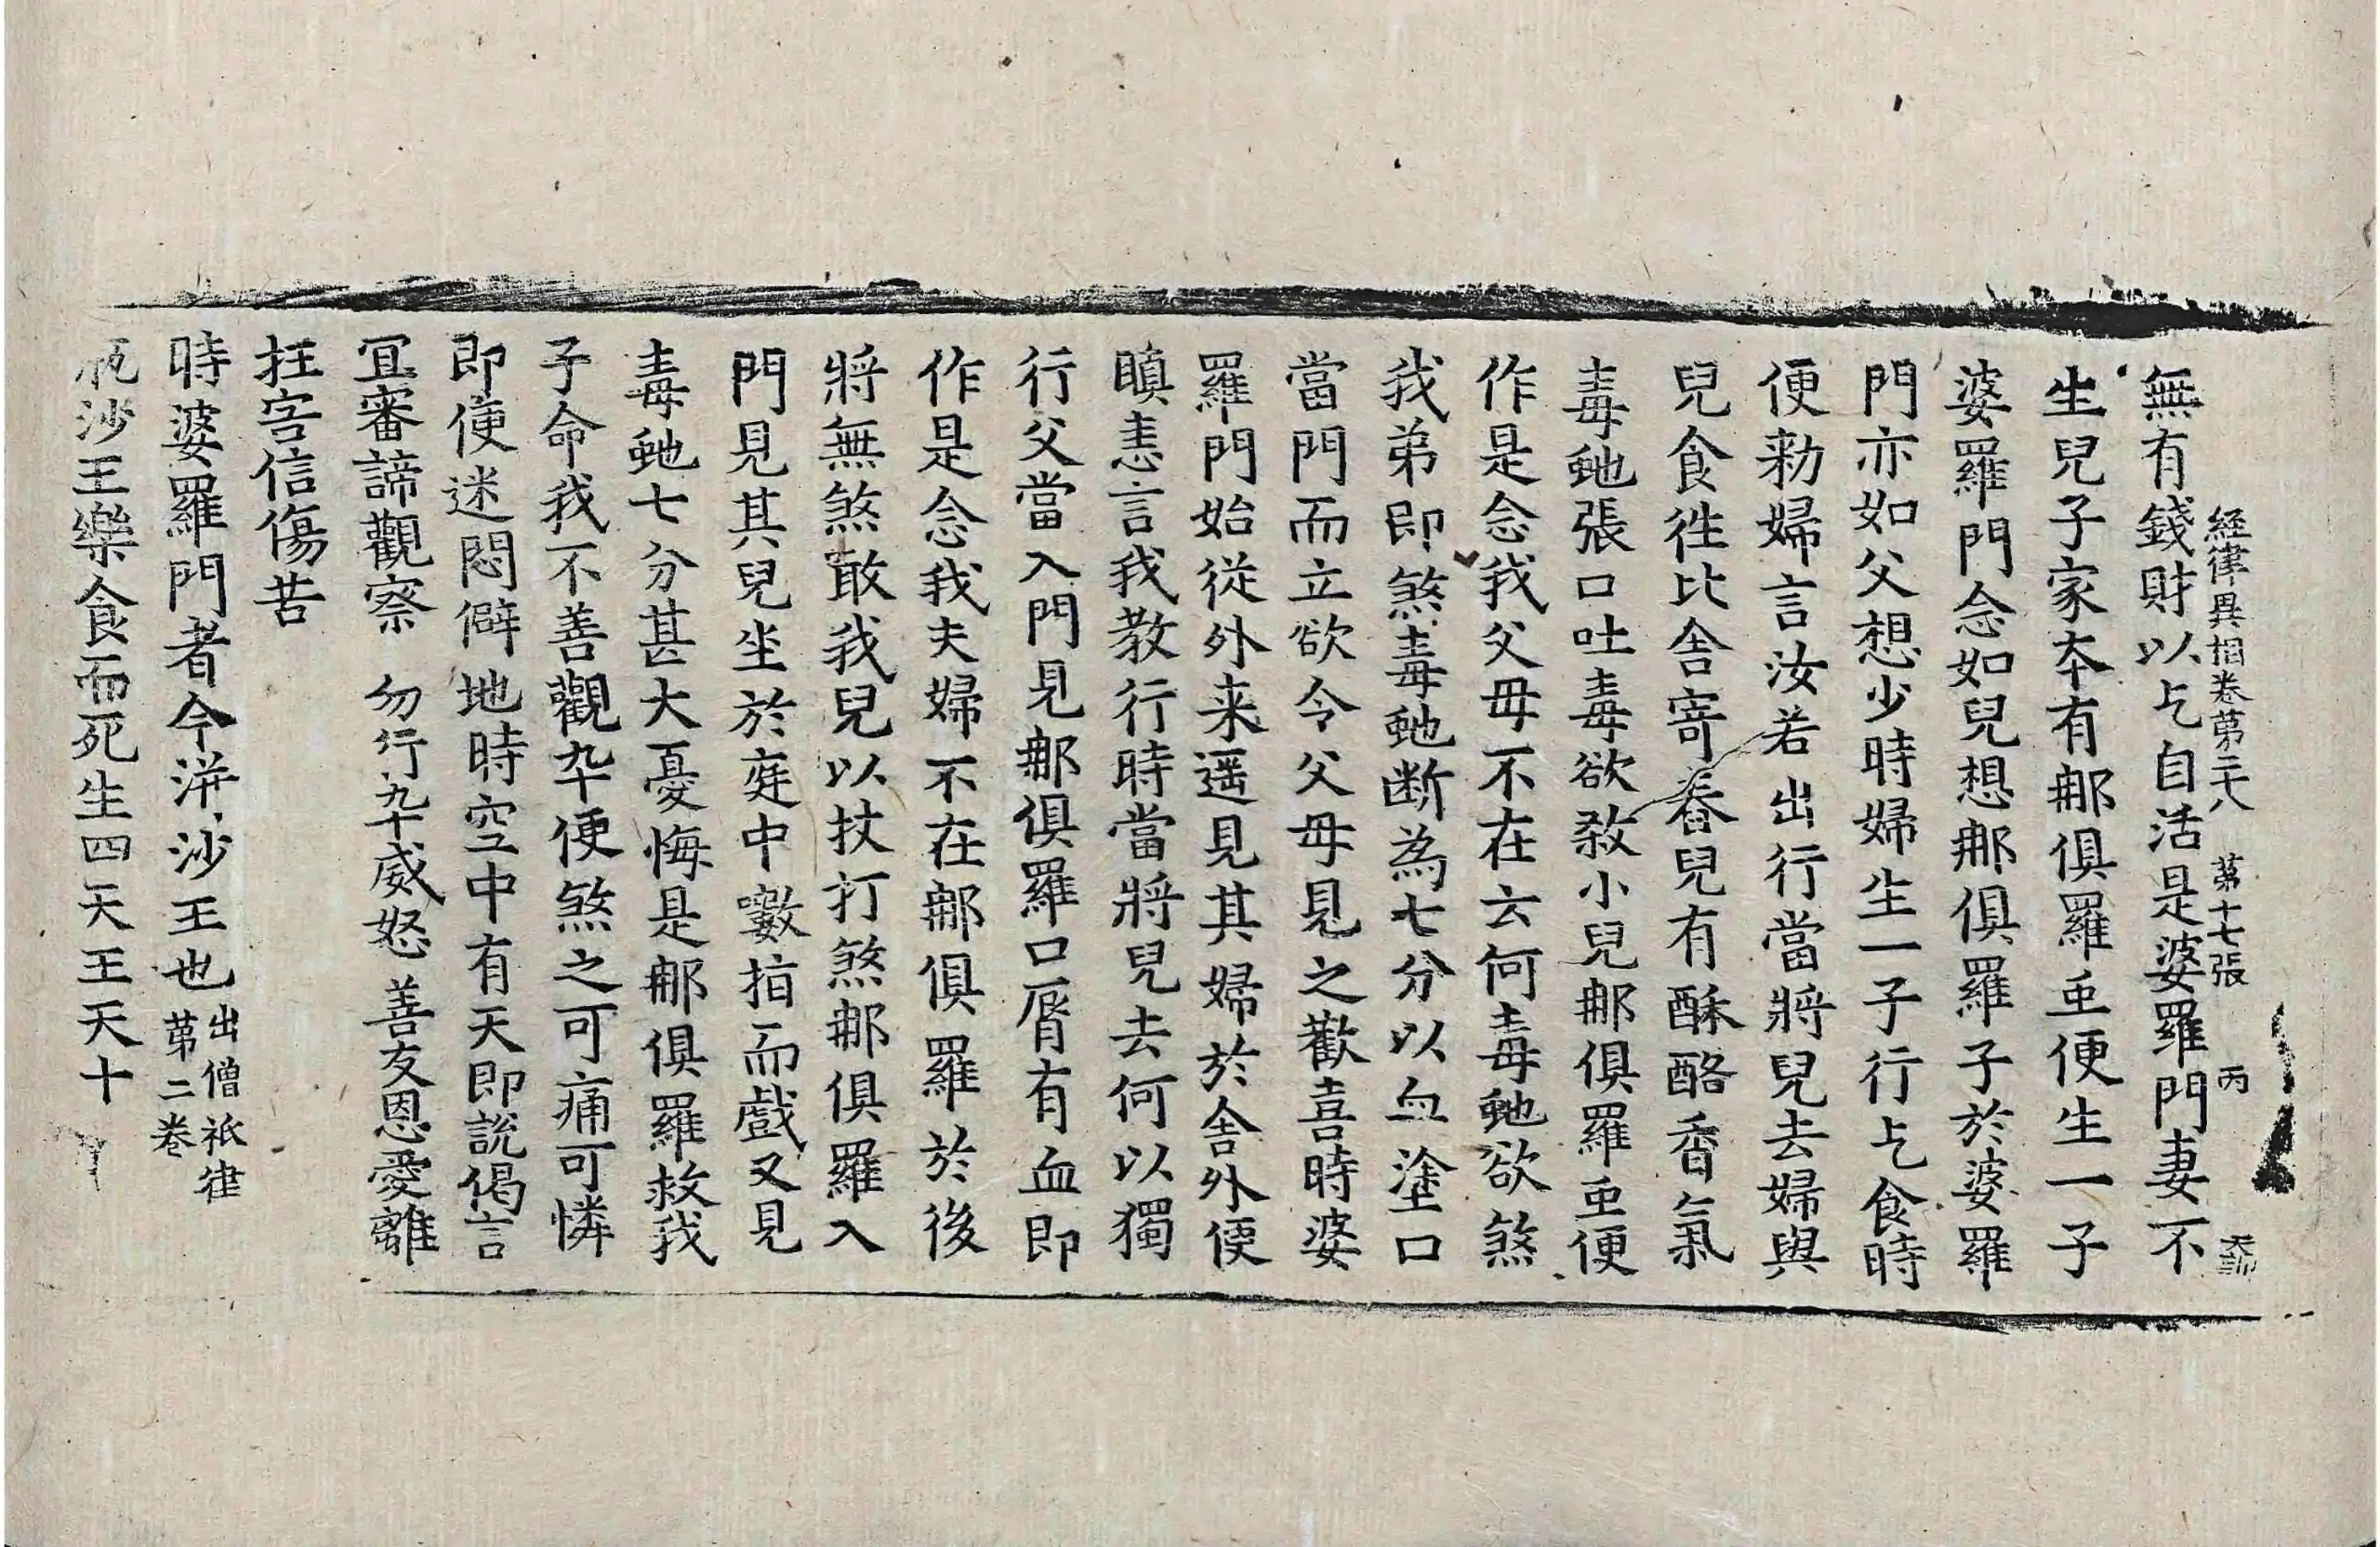 経律異相卷苐二十八 苐十七張 丙
無有錢財以乞自活是婆羅門妻不
生兒子家夲有𨚗俱羅䖝便生一子
婆羅門念如兒想𨚗俱羅子於婆羅
門亦如父想少時婦生一子行乞食時
便勑婦言汝若出行當將兒去婦與
兒食徃比舍寄舂兒有酥酪香氣
毒虵張口吐毒欲敎小兒𨚗俱羅䖝便
作是念我父母不在云何毒虵欲煞
我弟即煞毒虵断為七分以血塗口
當門而立欲令父母見之歡喜時婆
羅門始從外来遥見其婦於舎外便
瞋恚言我教行時當將兒去何以獨
行父當入門見𨚗俱羅口脣有血即
作是念我夫婦不在𨚗俱羅於後
將無煞敢我兒以杖打煞𨚗俱羅入
門見其兒坐於庭中𠿒指而戲又見
毒虵七分甚大憂悔是𨚗俱羅救我
子命我不善觀卒便煞之可痛可憐
即便迷悶僻地時空中有天即説偈言
冝審諦觀察 勿行卒威怒 善友恩愛離
抂害信傷苦
時婆羅門者今洴沙王也 出僧祇律苐二卷
瓶沙王樂食而死生四天王天十